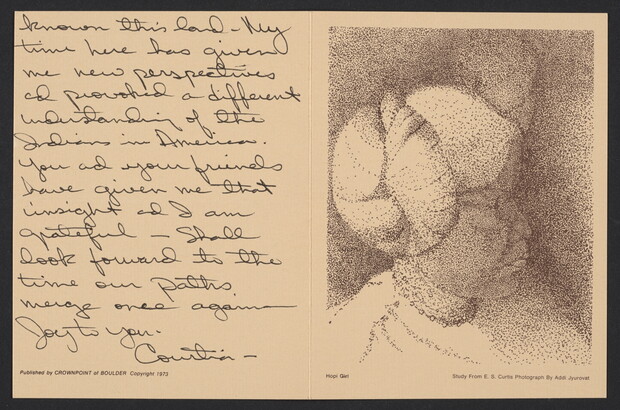 known this land - My
time here has given
me new perspectives
ad provoked a different
understanding of the
Indians in America.
You ad your friends
have given me that
insight ad I am
grateful - Shall
look forward to the
time our paths
merge once again -
Joy to you.
Published by CROWNPOINT of BOULDER Copyright 1973
Hopi Girl
Study From E. S. Curtis Photograph By Addi Jyurovat